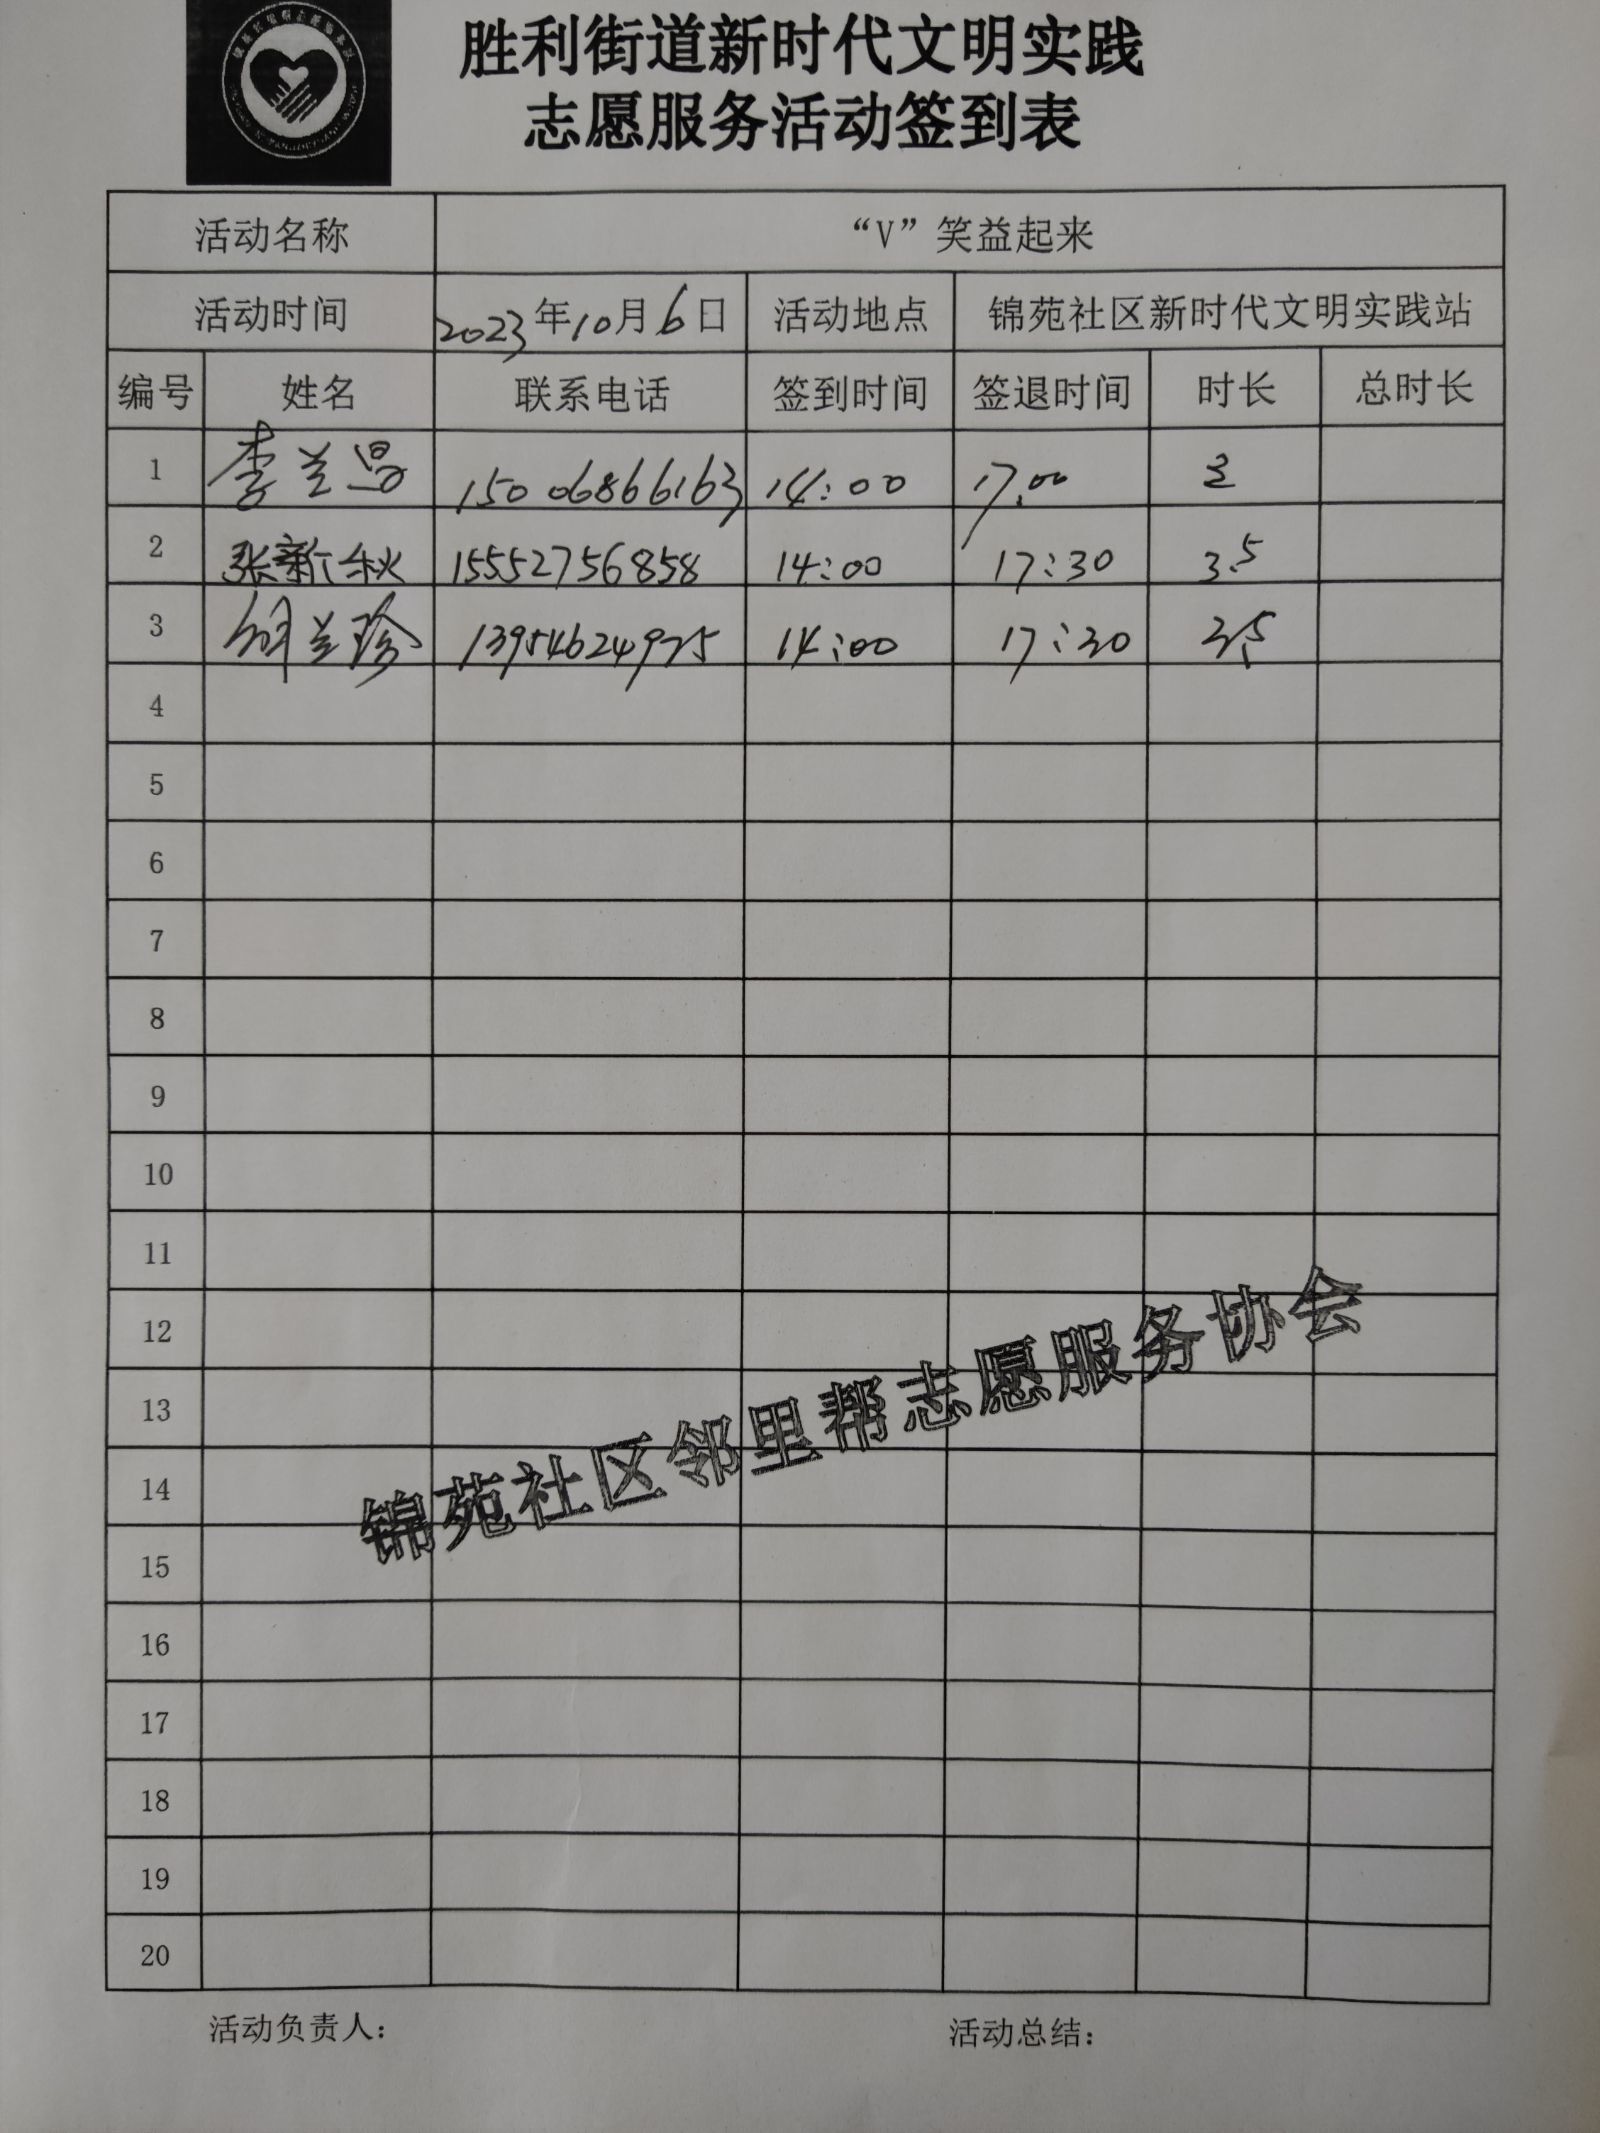 胜利街道新时代文明实践
志愿服务活动签到表
活动名称 “V”笑益起来
活动时间 2023年10月6日 活动地点 锦苑社区新时代文明实践站
编号 姓名 联系电话 签到时间 签退时间 时长 总时长
1 李兰 15006866163 14:00 17.00 3
2 张新秋 15552756858 14:00 17:30 3.5
3 胡兰珍 13954624975 14:00 17:30 3.5
4
5
6
7
8
9
10
11
12
13
14
15
16
17
18
19
20
锦苑社区邻里帮志愿服务协会
活动负责人： 活动总结：